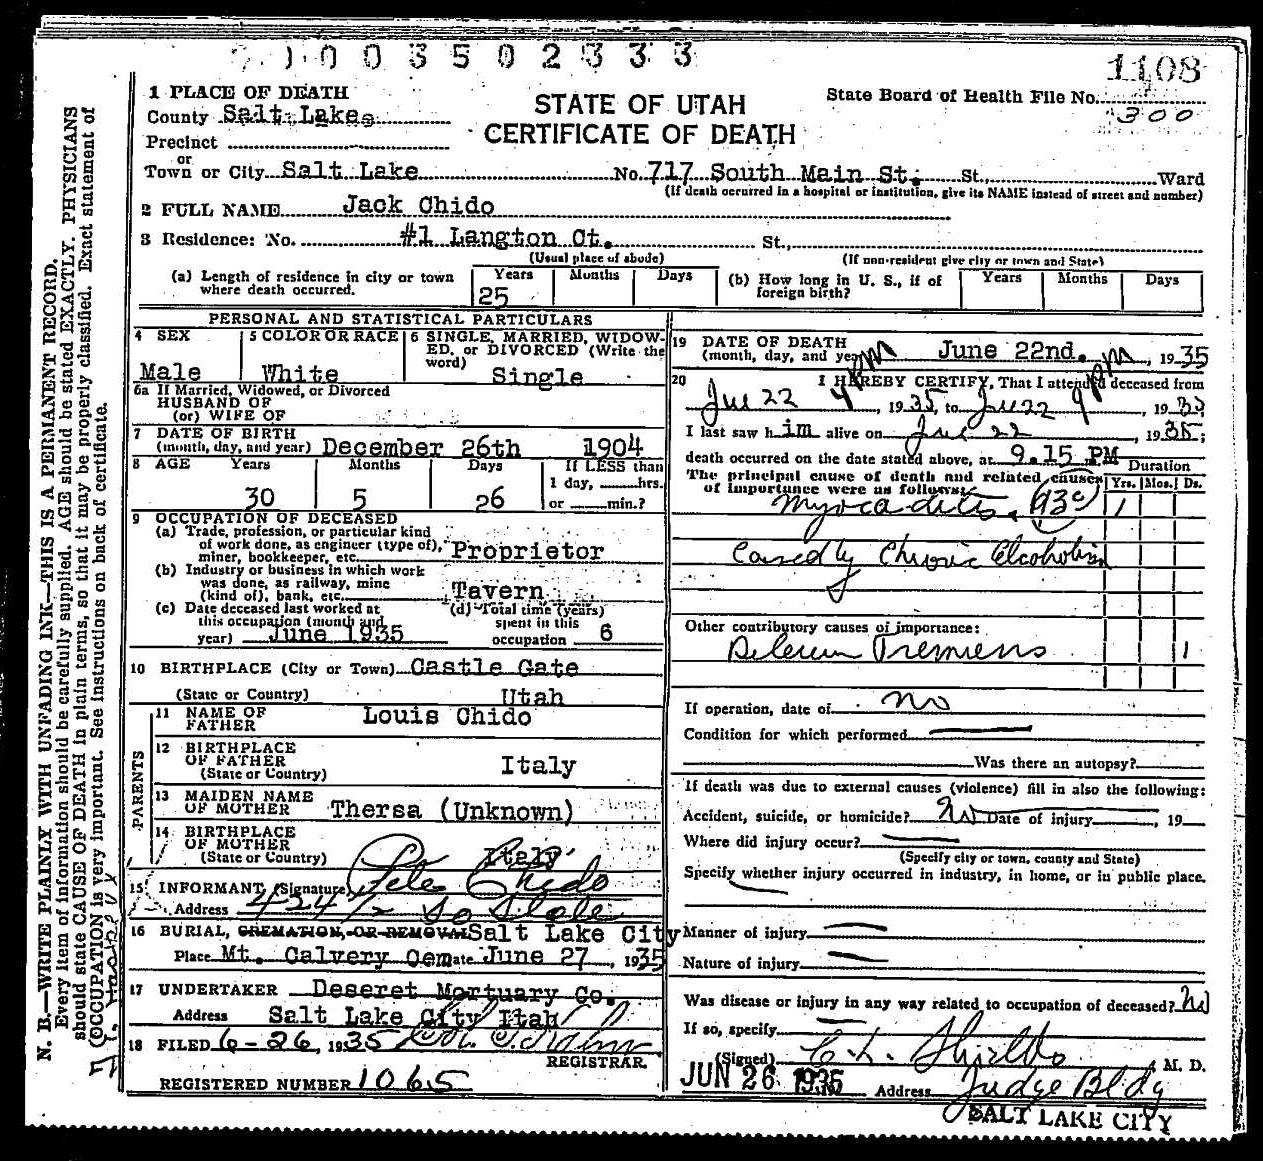 1003502333
1108
1 PLACE OF DEATH
STATE OF UTAH
CERTIFICATE OF DEATH
State Board of Health File No.
300
County Salt Lake
Precinct
or
Town or City Salt Lake No. 717 South Main St. St., Ward
(If death occurred in a hospital or institution, give its NAME instead of street and number)
2 FULL NAME Jack Chido
3 Residence: No. #1 Langton Ct. St.,
(Usual place of abode) (If non-resident give city or town and State)
(a) Length of residence in city or town where death occurred. Years 25 Months Days
(b) How long in U. S., if of foreign birth? Years Months Days
PERSONAL AND STATISTICAL PARTICULARS
4 SEX Male
5 COLOR OR RACE White
6 SINGLE, MARRIED, WIDOWED, or DIVORCED (Write the word) Single
6a If Married, Widowed, or Divorced
HUSBAND OF
(or) WIFE OF
7 DATE OF BIRTH
(month, day, and year) December 26th 1904
8 AGE Years 30 Months 5 Days 26 If LESS than 1 day, hrs. or min.?
9 OCCUPATION OF DECEASED
(a) Trade, profession, or particular kind
of work done, as engineer (type of),
miner, bookkeeper, etc. Proprietor
(b) Industry or business in which work
was done, as railway, mine
(kind of), bank, etc. Tavern
(c) Date deceased last worked at
this occupation (month and
year) June 1935
(d) Total time (years)
spent in this
occupation 6
10 BIRTHPLACE (City or Town) Castle Gate
(State or Country) Utah
PARENTS
11 NAME OF FATHER Louis Chido
12 BIRTHPLACE OF FATHER
(State or Country) Italy
13 MAIDEN NAME OF MOTHER Thersa (Unknown)
14 BIRTHPLACE OF MOTHER
(State or Country) Italy
15 INFORMANT (Signature) Pete Chido
Address 424 1/2 So State
16 BURIAL, CREMATION, OR REMOVAL Salt Lake City
Place Mt. Calvery Cem ate June 27, 1935
17 UNDERTAKER Deseret Mortuary Co.
Address Salt Lake City Utah
18 FILED 6-26, 1935
REGISTRAR.
REGISTERED NUMBER 1065
19 DATE OF DEATH
(month, day, and year) June 22nd. , 1935
20 I HEREBY CERTIFY, That I attended deceased from
22 4 PM, 1935, to 22 9 PM, 1935
I last saw him alive on 22, 1935;
death occurred on the date stated above, at 9.15 PM
The principal cause of death and related causes
of importance were as follows:
Duration
Yrs. Mos. Ds.
Myocaditis. 93c 1
Caused by Chronic Alcoholism
Other contributory causes of importance:
Delerium Tremens 1
If operation, date of no
Condition for which performed
Was there an autopsy?
If death was due to external causes (violence) fill in also the following:
Accident, suicide, or homicide? No Date of injury , 19
Where did injury occur?
(Specify city or town, county and State)
Specify whether injury occurred in industry, in home, or in public place.
Manner of injury
Nature of injury
Was disease or injury in any way related to occupation of deceased? No
If so, specify
(Signed) C. L. Shields M. D.
JUN 26 1935
Address Judge Bldg
SALT LAKE CITY
N. B.—WRITE PLAINLY WITH UNFADING INK—THIS IS A PERMANENT RECORD.
Every item of information should be carefully supplied. AGE should be stated EXACTLY. PHYSICIANS
should state CAUSE OF DEATH in plain terms, so that it may be properly classified. Exact statement of
OCCUPATION is very important. See instructions on back of certificate.